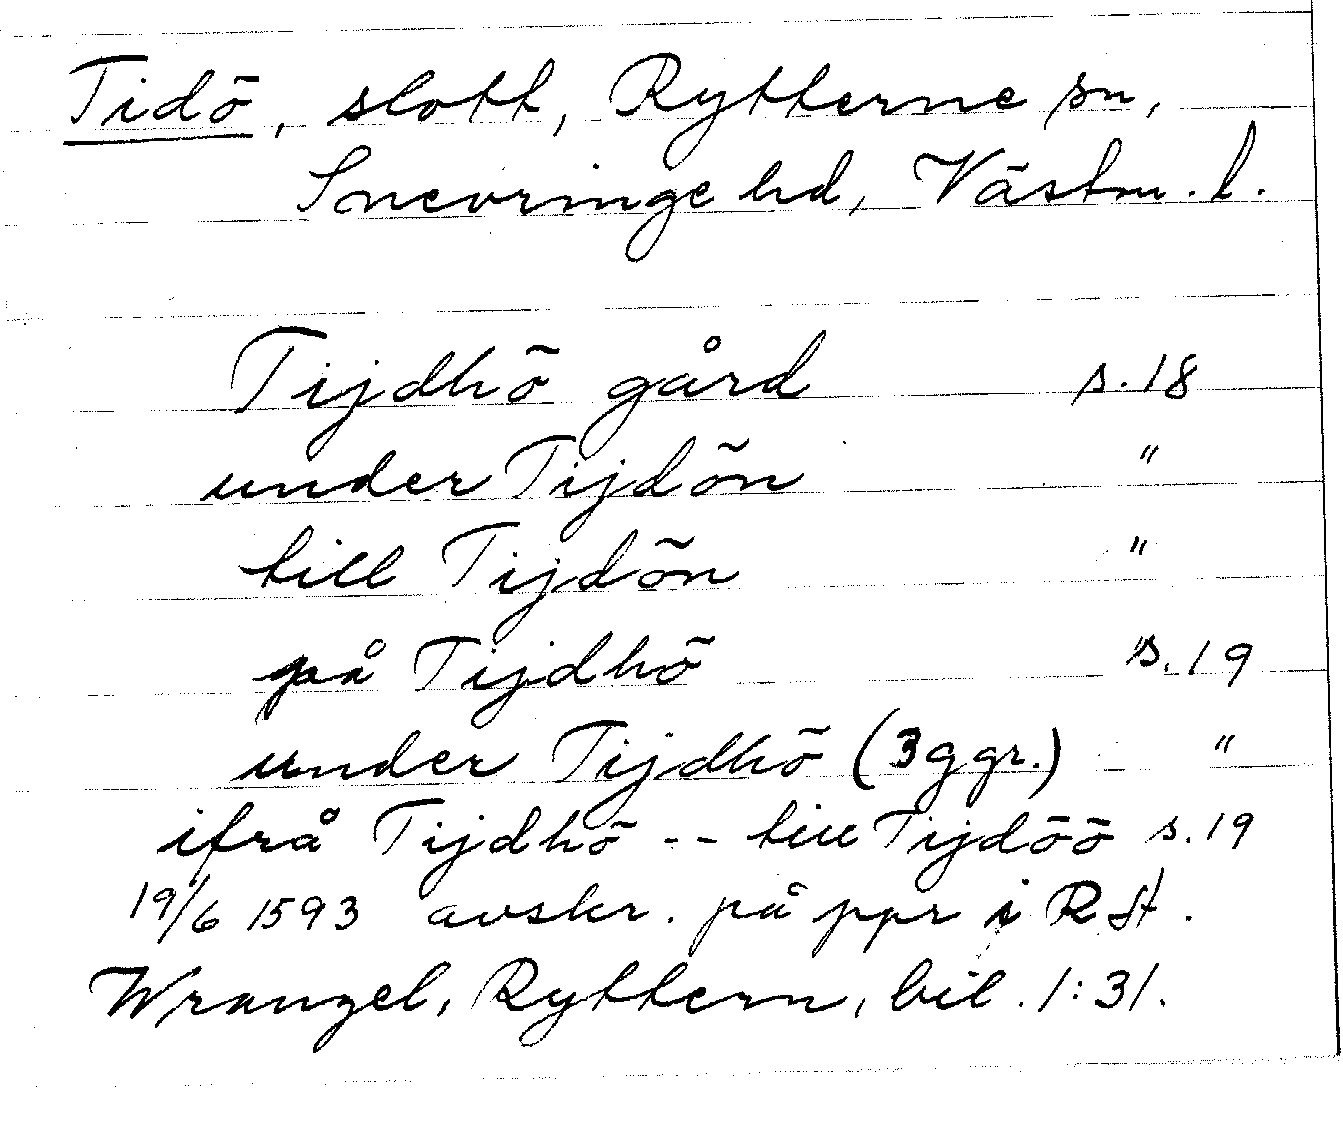 Tidö, slott, Rytterne sn,
Snevringe hd, Västm. l.
Tijdhö gård s. 18
under Tijdön "
till Tijdön "
på Tijdhö s. 19
under Tijdhö (3 ggr.) "
ifrå Tijdhö -- till Tijdöö s. 19
19/6 1593 avskr. på ppr i RA.
Wrangel, Ryttern, bil. 1:31.